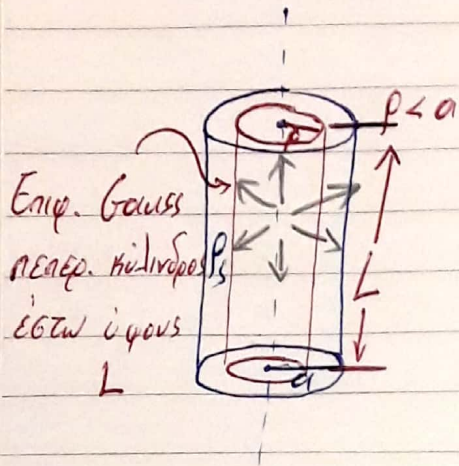 ρ < a
ρ
Επιφ. Gauss
πεπερ. κύλινδρος ρs
έστω ύψους
L
L
a